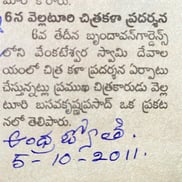 6న వెల్లటూరి చిత్రకళా ప్రదర్శన
6వ తేదీన బృందావన్‌గార్డెన్స్
లోని వేంకటేశ్వర స్వామి దేవాల
యంలో చిత్ర కళా ప్రదర్శన ఏర్పాటు
చేస్తున్నట్లు ప్రముఖ చిత్రకారుడు వెల్ల
టూరి బసవకృష్ణప్రసాద్ ఒక ప్రకట
నలో తెలిపారు.
ఆంధ్ర జ్యోతి.
5-10-2011.